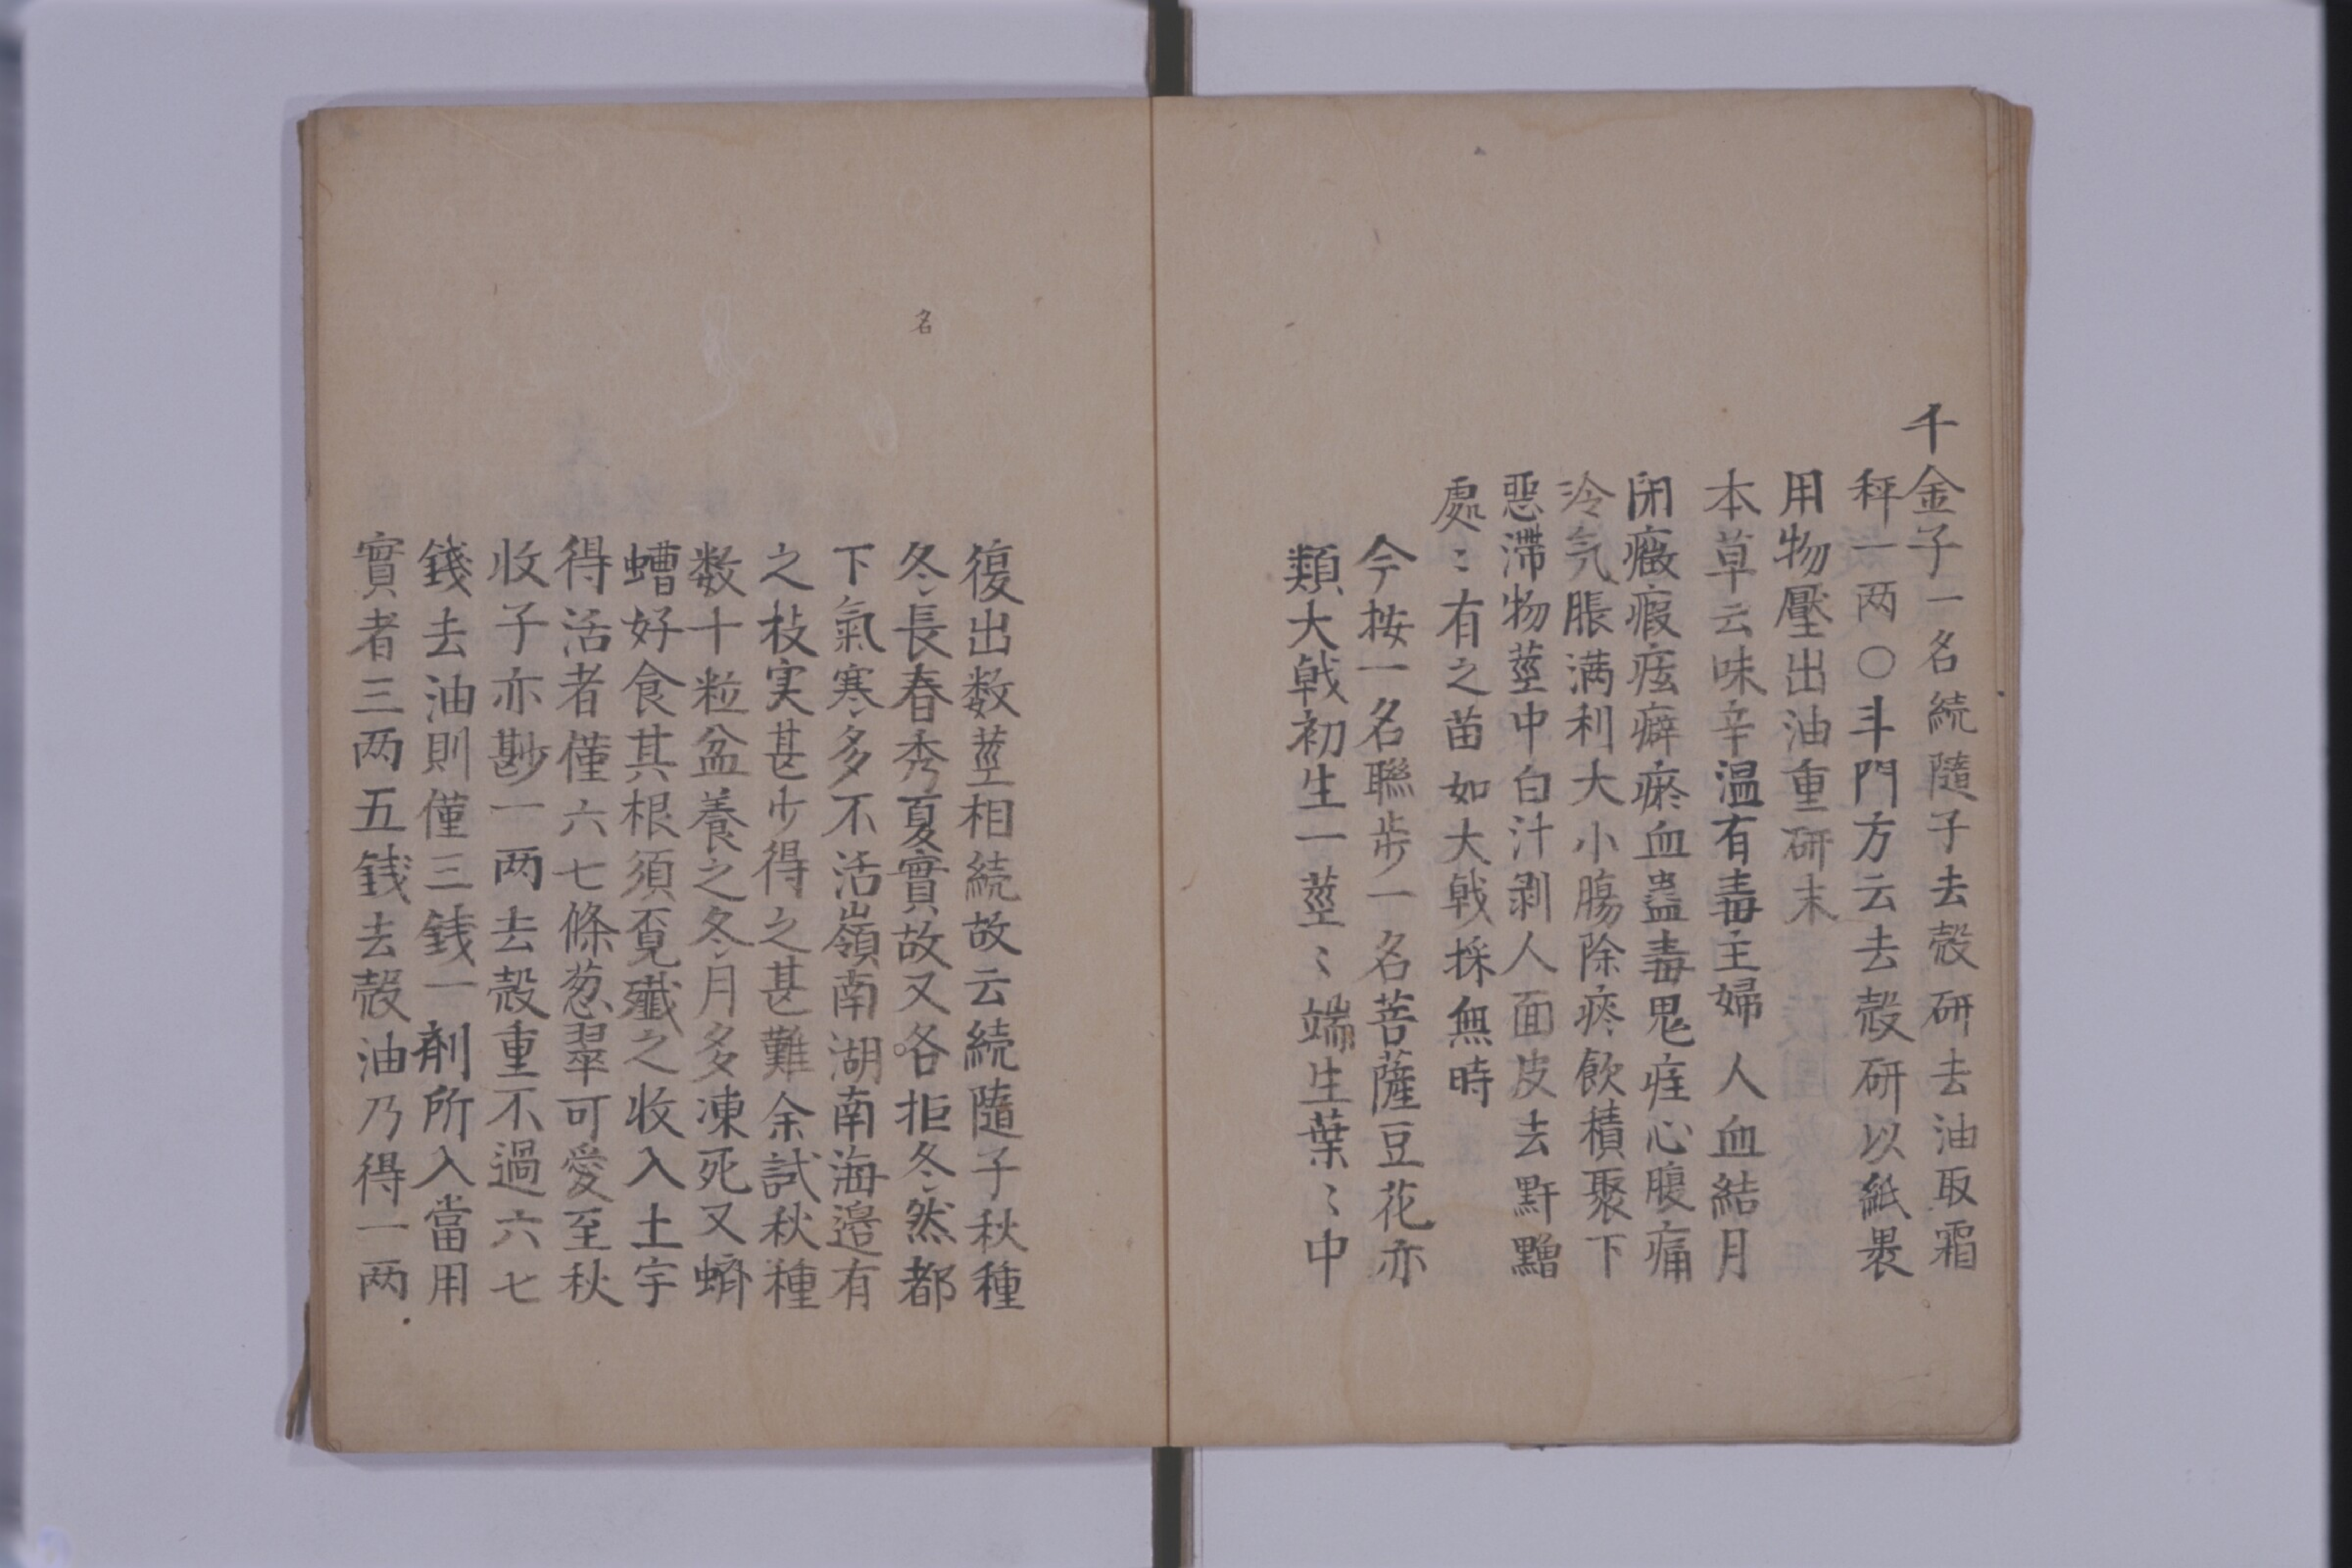 千金子一名続隨子去殻研去油取霜
秤一两〇斗門方云去殻研以紙褁
用物壓出油重研末
本草云味辛温有毒主婦人血結月
閉癥瘕痃癖瘀血蠱毒鬼疰心腹痛
冷气脹满利大小腸除痰飲積聚下
惡滯物莖中白汁剥人面皮去䵟䵳
處〻有之苗如大戟採無時
今按一名聯歩一名菩薩豆花亦
類大戟初生一莖〻端生葉〻中
復出数莖相続故云続隨子秋種
冬長春秀夏實故又各拒冬然都
名
下氣寒多不活嶺南湖南海邉有
之枝実甚少得之甚難余試秋種
数十粒盆養之冬月多凍死又蠐
螬好食其根須覔殲之收入土宇
得活者僅六七條葱翠可愛至秋
收子亦尠一两去殻重不過六七
錢去油則僅三錢一剤所入當用
實者三两五錢去殻油乃得一两